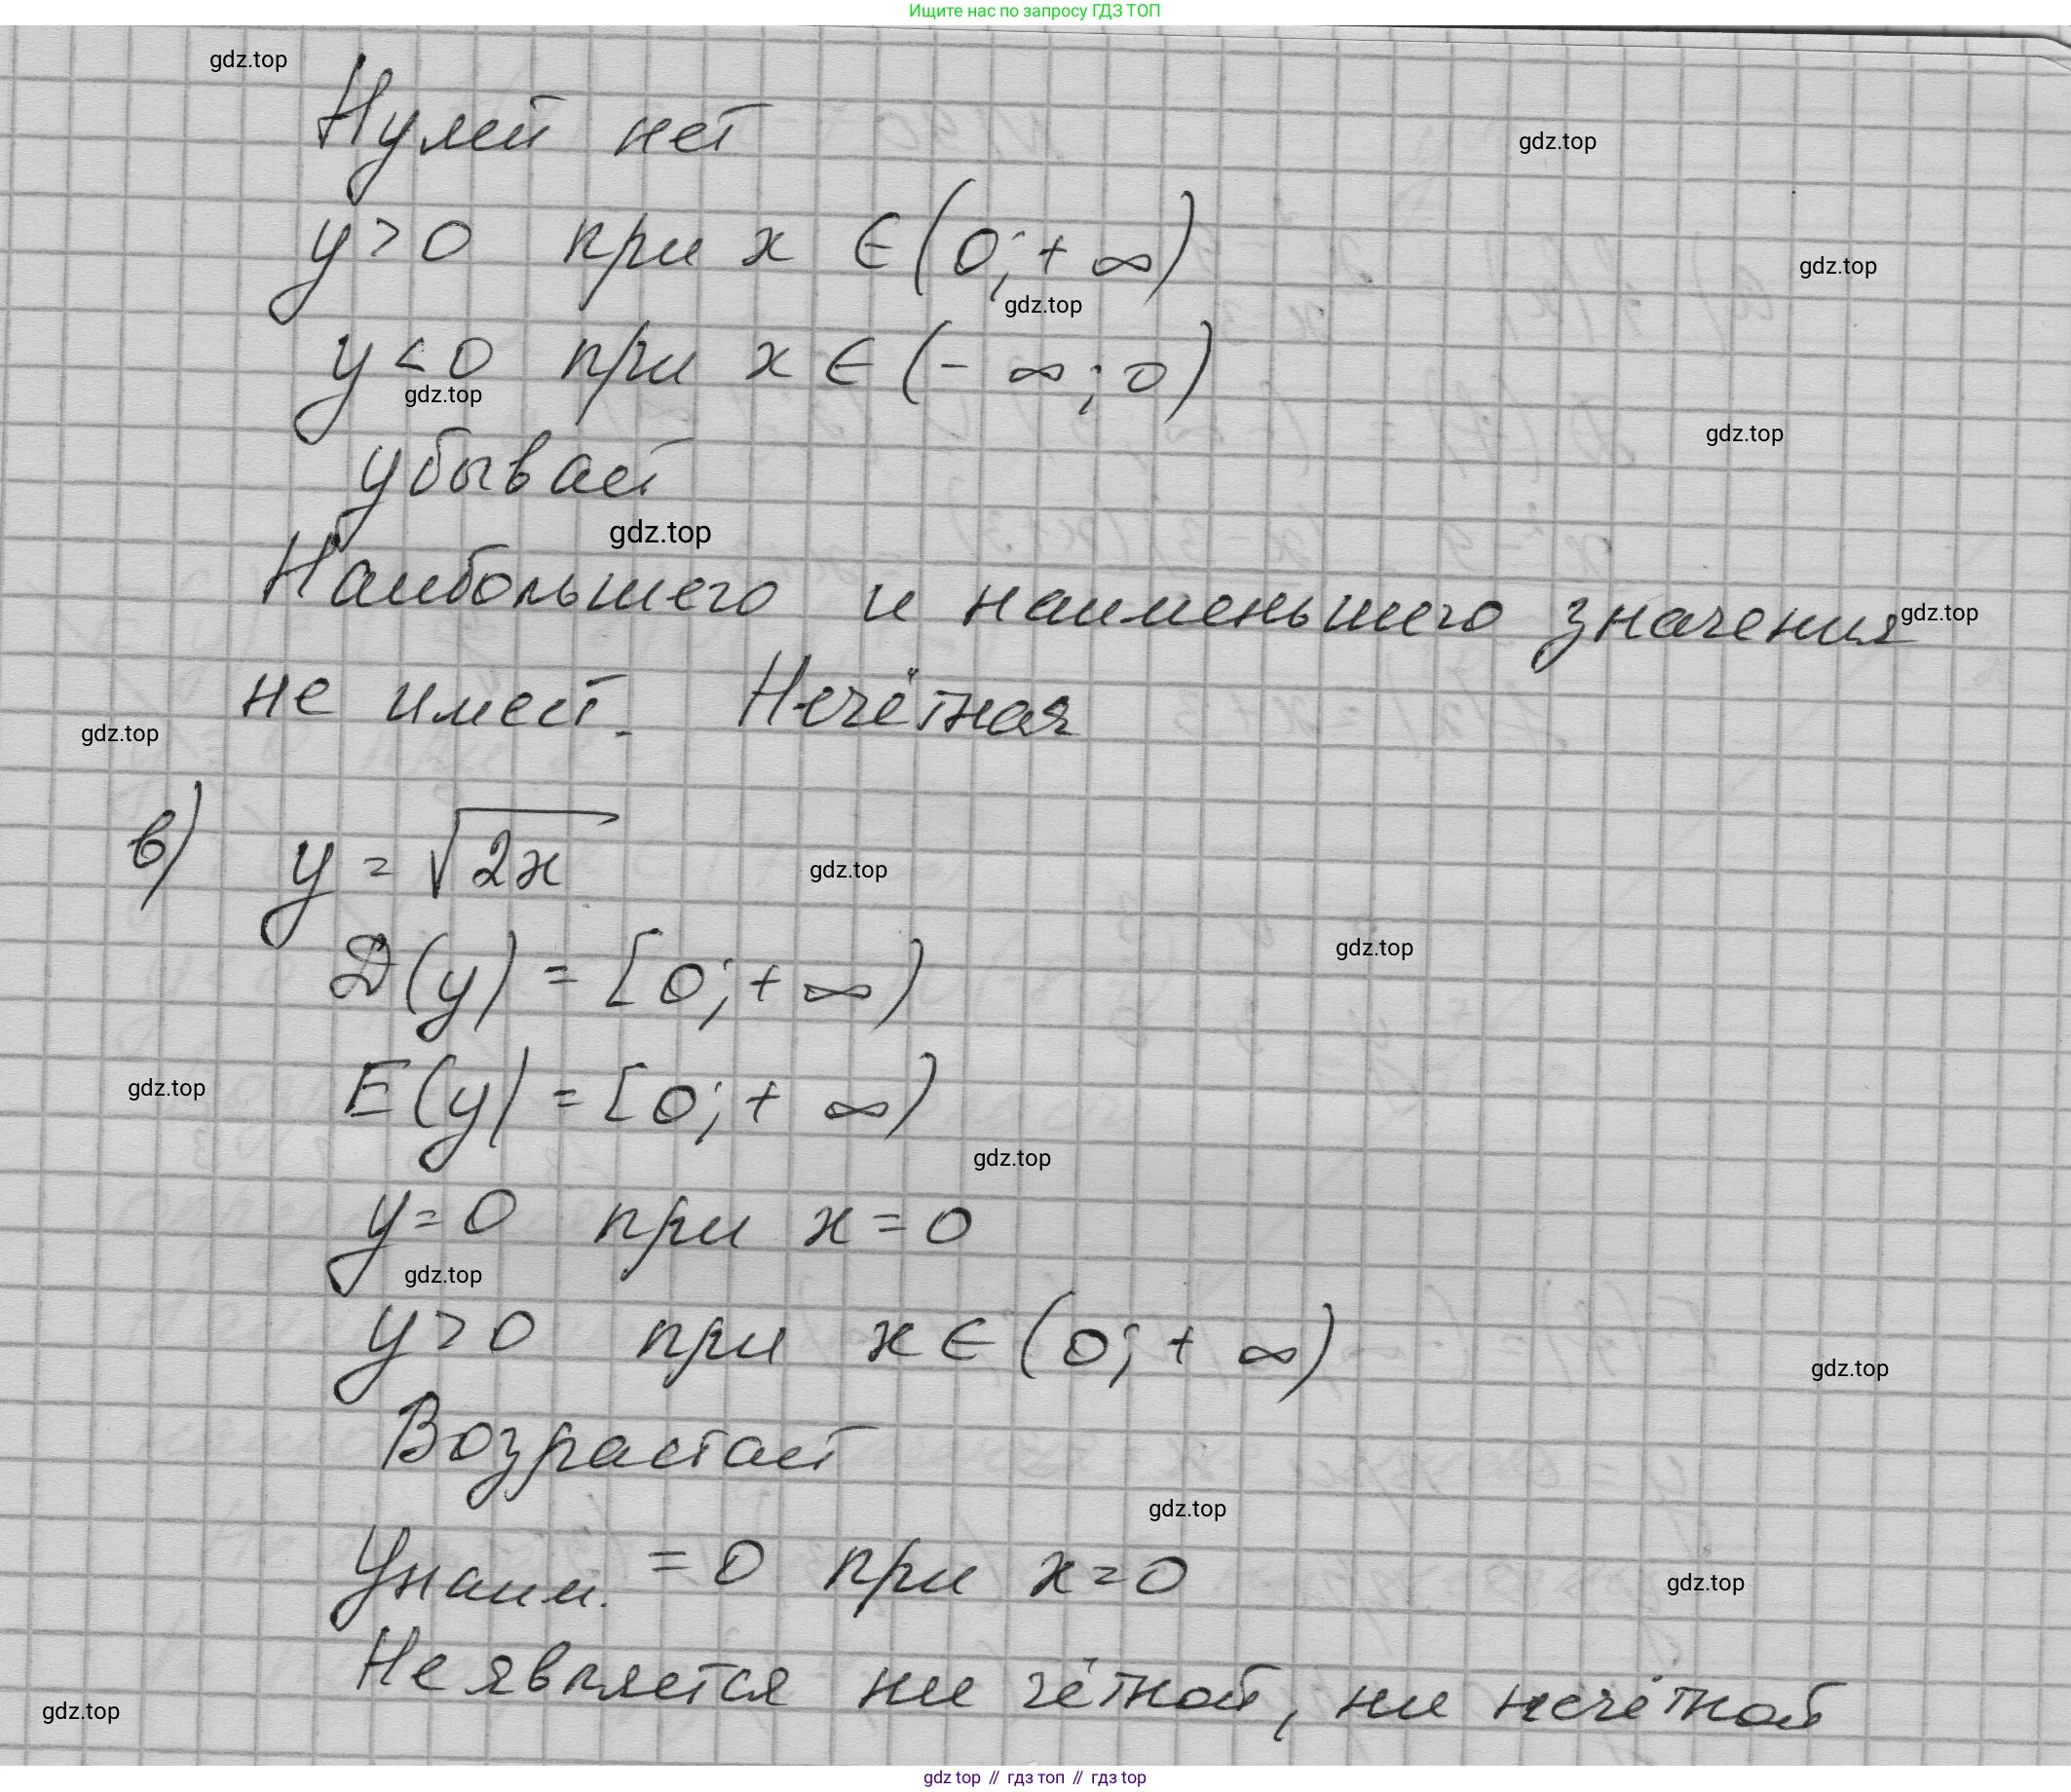 Ищите нас по запросу ГДЗ ТОП
gdz.top
Нулей нет
gdz.top
y > 0 при x ∈ (0; + ∞)
gdz.top
gdz.top
y < 0 при x ∈ (- ∞; 0)
gdz.top
gdz.top
убывает
gdz.top
Наибольшего и наименьшего значения
gdz.top
не имеет. Нечётная
gdz.top
в) y = √2x
gdz.top
gdz.top
D(y) = [0; + ∞)
gdz.top
E(y) = [0; + ∞)
gdz.top
y = 0 при x = 0
gdz.top
y > 0 при x ∈ (0; + ∞)
gdz.top
Возрастает
gdz.top
yнаим. = 0 при x = 0
gdz.top
Не является ни чётной, ни нечётной
gdz.top
gdz top // гдз топ // гдз top